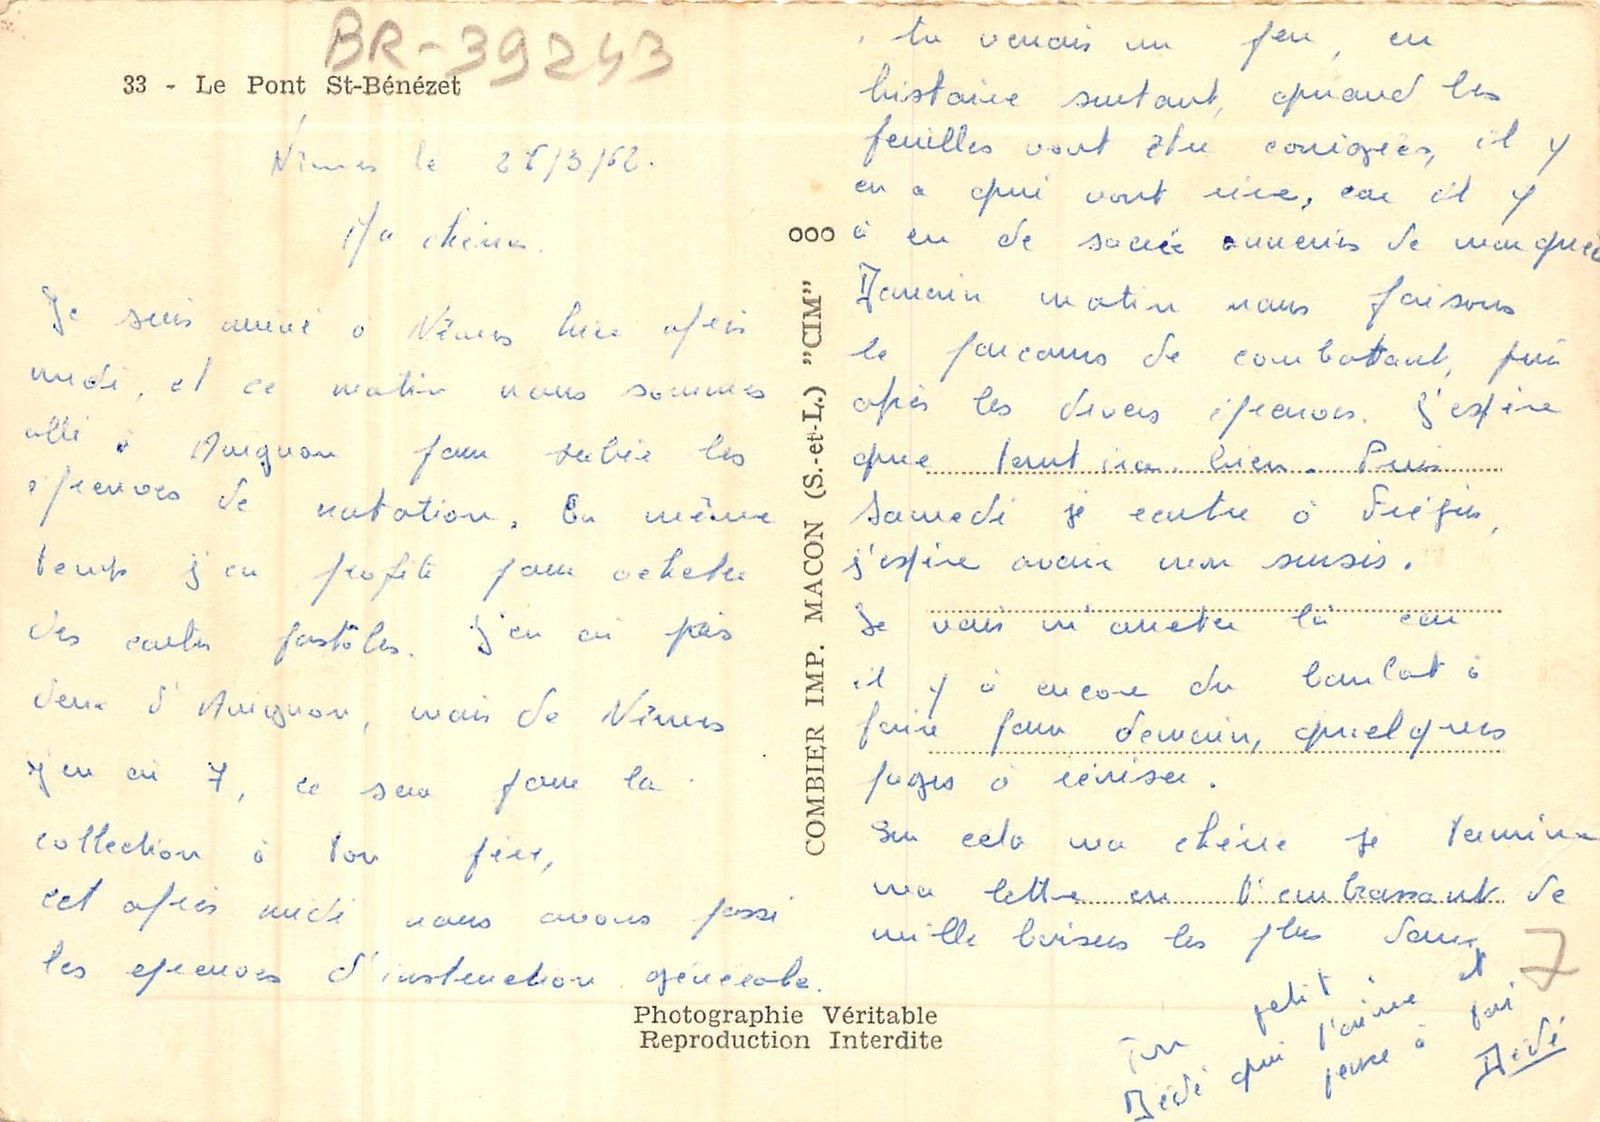 BR-39243
33 - Le Pont St-Bénézet
Nîmes le 28/3/62.
Ma chérie.
Je suis arrivé a Nîmes hier après
midi, et ce matin nous sommes
allé à Avignon pour subir les
épreuves de natation. En même
temps j'en profite pour acheter
des cartes postales. J'en ai pris
deux d'Avignon, mais de Nîmes
j'en ai 7, ce sera pour la
collection à ton père,
cet après midi nous avons passé
les epreuves d'instruction générale.
COMBIER IMP. MACON (S.-et-L.) "CIM"
Photographie Véritable
Reproduction Interdite
tu verrais un peu, en
histoire surtout, quand les
feuilles vont être corrigées, il y
en a qui vont rire, car il y
à en de sacrée anneries de marquée
Demain matin nous faisons
le parcours de combattant, puis
après les divers épreuves. J'espère
que tout ira bien. Puis
Samedi je rentre à Fréjus,
j'espère avoir mon sursis.
Je vais m'arreter là car
il y à encore du boulot à
faire pour demain, quelques
pages à réviser.
Sur cela ma chérie je termine
ma lettre en t'embrassant de
mille baisers les plus doux
7
Ton petit
Dédé qui t'aime et
pense à toi
Dédé